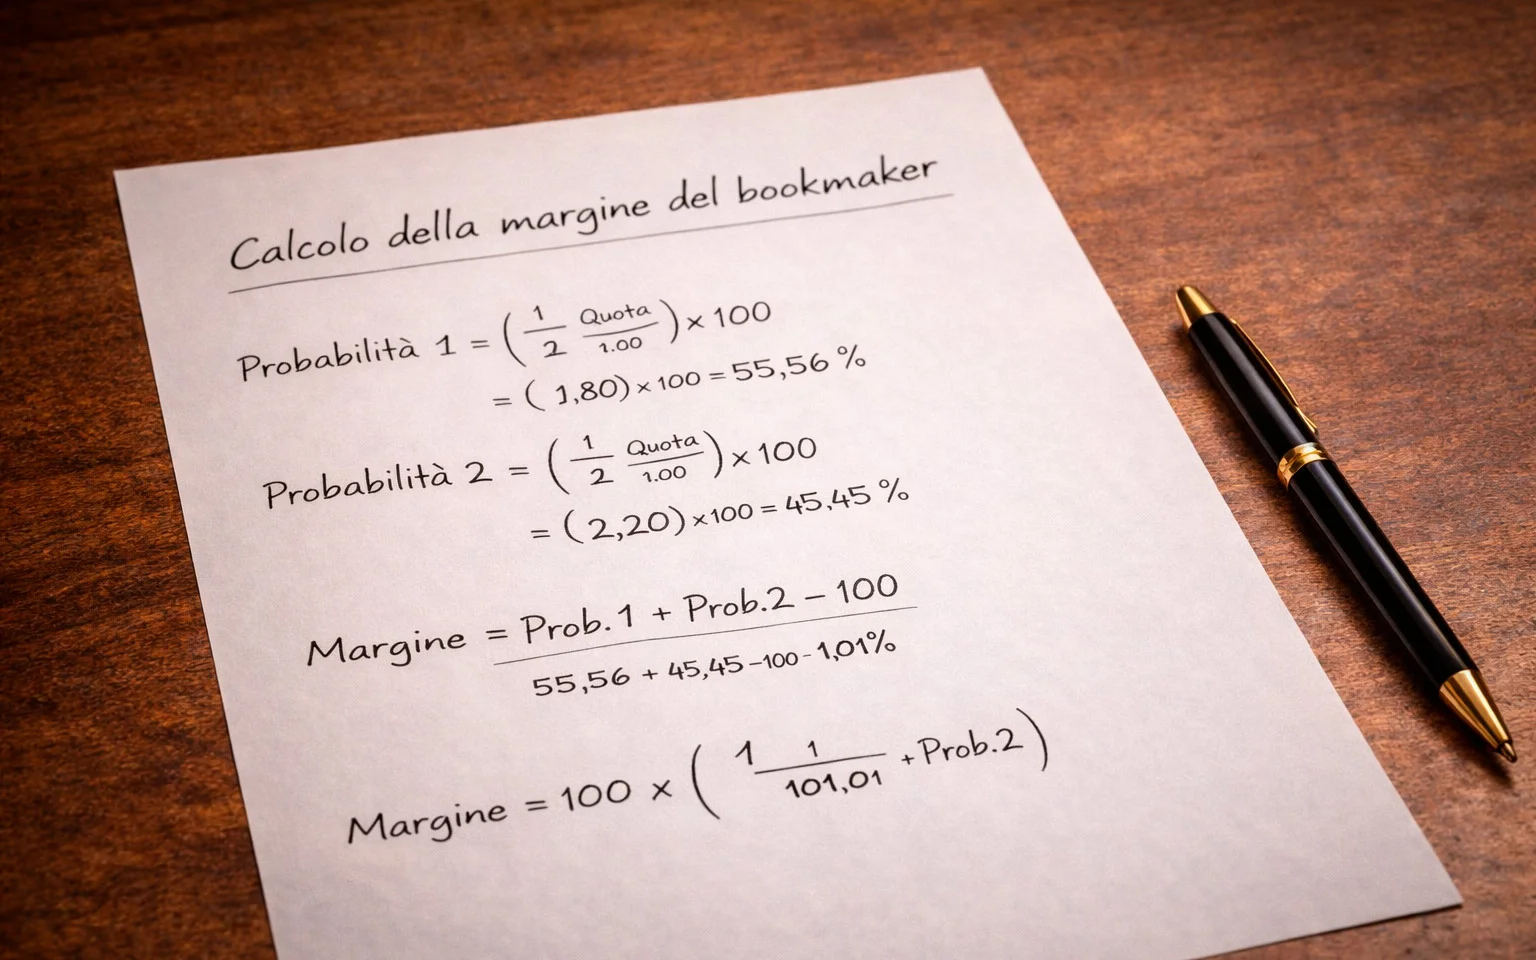 Calcolo della margine del bookmaker
Probabilità 1 = ( 1/2 Quota/1.00 ) × 100
= ( 1,80) × 100 = 55,56 %
Probabilità 2 = ( 1/2 Quota/1.00 ) × 100
= ( 2,20) ×100 = 45,45 %
Margine = Prob. 1 + Prob.2 – 100
55,56 + 45,45 –100 - 1,01%
Margine = 100 × ( 1 1/101,01 + Prob.2 )